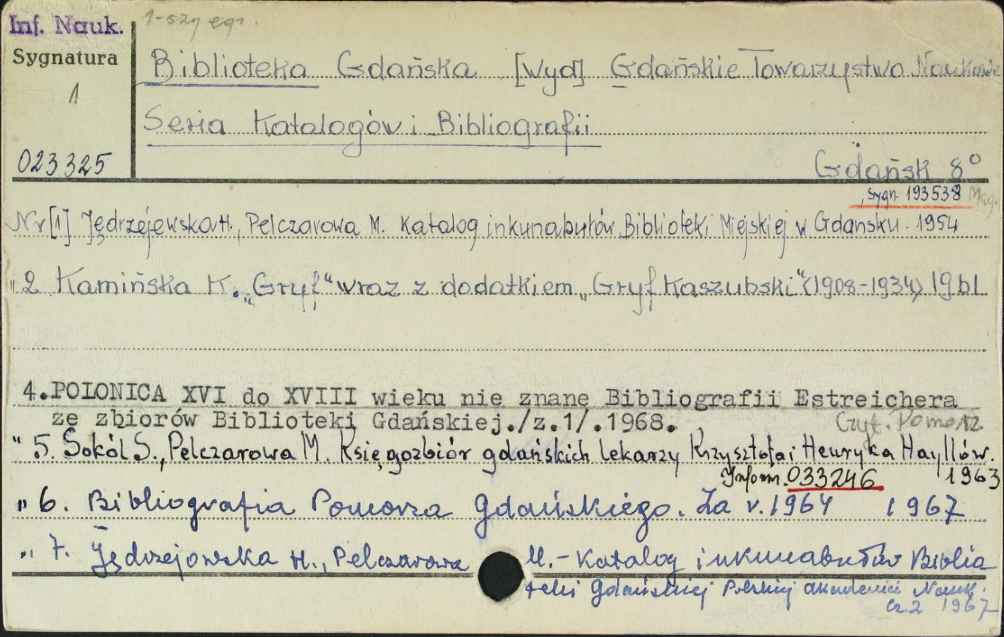 Inf. Nauk.
1-szy egz.
Sygnatura
1
023325
Biblioteka Gdańska [Wyd] Gdańskie Towarzystwo Naukowe
Seria Katalogów i Bibliografii
Gdańsk 8°
Sygn. 193538 Mag.
Nr [1] Jędrzejewska H., Pelczarowa M. Katalog inkunabułów Biblioteki Miejskiej w Gdańsku. 1954
" 2 Kamińska K. „Gryf" wraz z dodatkiem „Gryf Kaszubski" (1908-1934) 1961
4. POLONICA XVI do XVIII wieku nie znane Bibliografii Estreichera
ze zbiorów Biblioteki Gdańskiej./z.1/.1968.
Czyt. Pomorz.
" 5. Sokół S., Pelczarowa M. Księgozbiór gdańskich lekarzy Krzysztofa i Henryka Hayllów.
Inform. 033246 1963
" 6. Bibliografia Pomorza Gdańskiego. Za r. 1964 1967
" 7. Jędrzejowska H., Pelczarowa M. - Katalog inkunabułów Biblio
teki Gdańskiej Polskiej Akademii Nauk.
Cz 2 1967